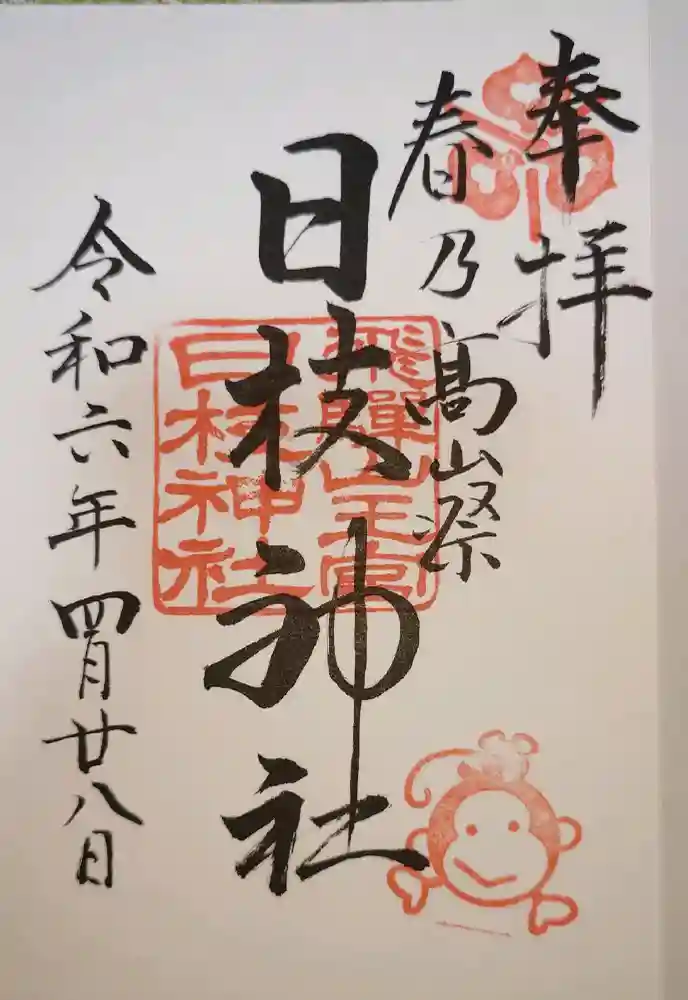 奉拝
春乃高山祭
日枝神社
飛騨山王宮
日枝神社
令和六年四月廿八日